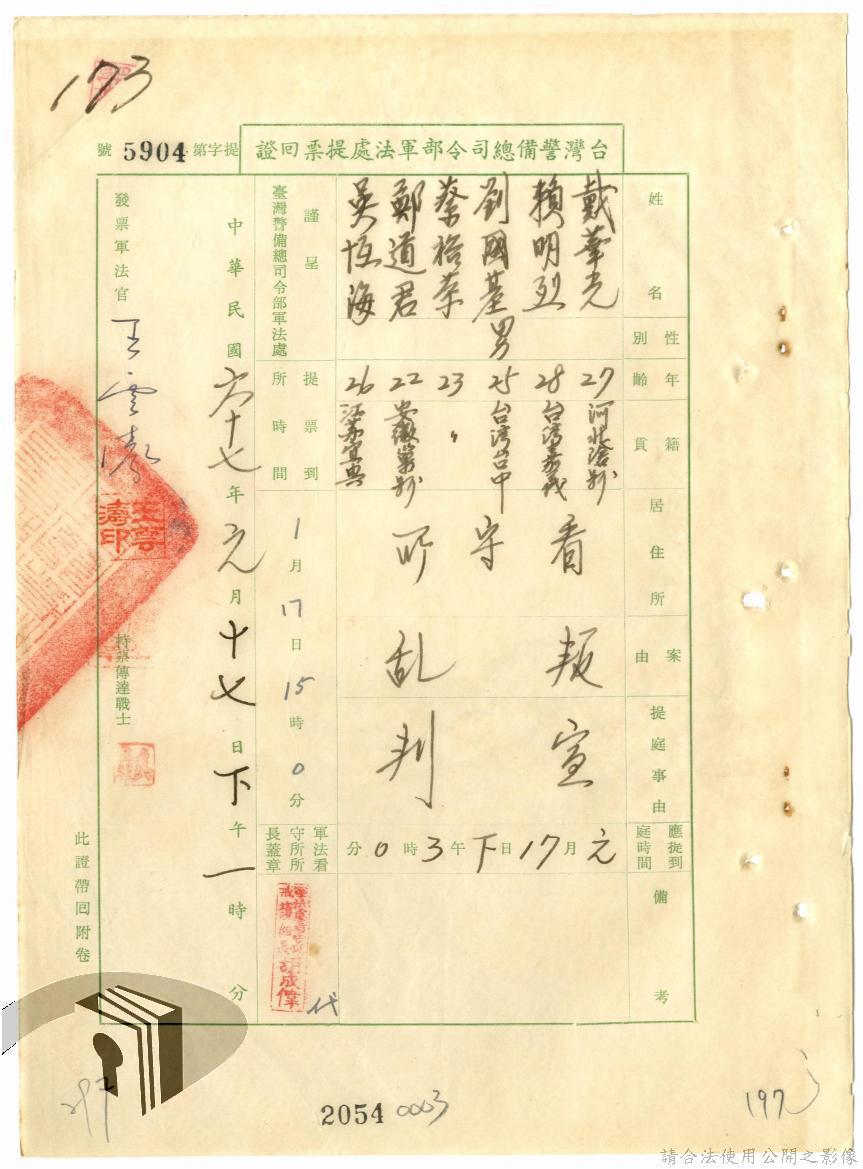 173
台灣警備總司令部軍法處提票回證
提字第5904號
姓名
戴華光
賴明烈
劉國基
蔡裕荣
鄭道君
吳恒海
性別
男
年齡
27
28
25
23
22
26
籍貫
河北滄縣
台湾嘉義
台湾台中
〃
安徽巢縣
江苏宜興
居住所
看守所
案由
叛乱
提庭事由
宣判
應提到庭時間
元月17日下午3時0分
備考
謹呈
臺灣警備總司令部軍法處
提票到所時間
1月17日15時0分
軍法看守所所長蓋章
胡成偉
代
中華民國六十七年元月十七日下午一時 分
發票軍法官
王雲濤
王雲濤印
持票傳達戰士
此證帶回附卷
2054 0003
197
請合法使用公開之影像